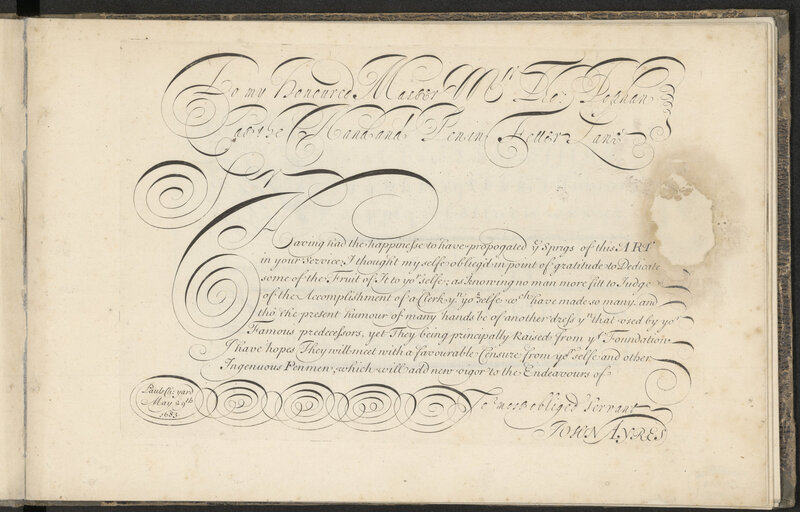 To my Honoured Master Mr. Tho: Topham
Att the Hand and Pen in Fetter Lane
Sr
Having had the happinesse to have propogated ye Sprigs of this ART
in your Service, I thought my selfe obliegd in point of gratitude to Dedicate
some of the Fruit of It to yor. selfe; as knowing no man more fitt to Judge
of the Accomplishment of a Clerk yn. yor. selfe wch. have made so many. and
tho' the present humour of many hands be of another dress yn. that used by yor
Famous predecessors, yet They being principally Raised from yt. Foundation
I have hopes They will meet with a favourable Censure from yor. selfe and other
Ingenuous Penmen, which will add new vigor to the Endeavours of
Pauls Ch: yard
May 29th
1683
Yor. most obliged Servant
JOHN AYRES